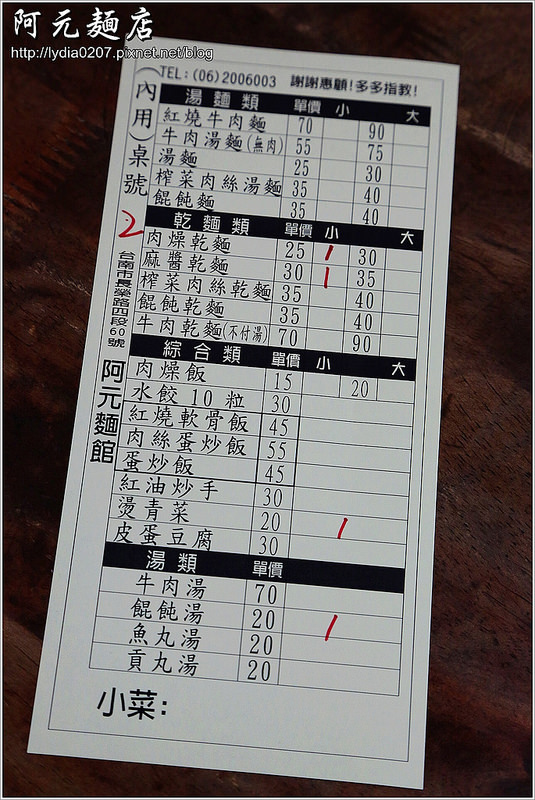 阿元麵店
http://lydia0207.pixnet.net/blog
TEL:(06)2006003 謝謝惠顧!多多指教!
(內用)桌號
2
台南市長榮路四段60號
阿元麵館
湯麵類 單價 小 大
紅燒牛肉麵 70 90
牛肉湯麵(無肉) 55 75
湯麵 25 30
榨菜肉絲湯麵 35 40
餛飩麵 35 40
乾麵類 單價 小 大
肉燥乾麵 25 1 30
麻醬乾麵 30 1 35
榨菜肉絲乾麵 35 40
餛飩乾麵 35 40
牛肉乾麵(不付湯) 70 90
綜合類 單價 小 大
肉燥飯 15 20
水餃10粒 30
紅燒軟骨飯 45
肉絲蛋炒飯 55
蛋炒飯 45
紅油炒手 30
燙青菜 20 1
皮蛋豆腐 30
湯類 單價
牛肉湯 70
餛飩湯 20 1
魚丸湯 20
貢丸湯 20
小菜: